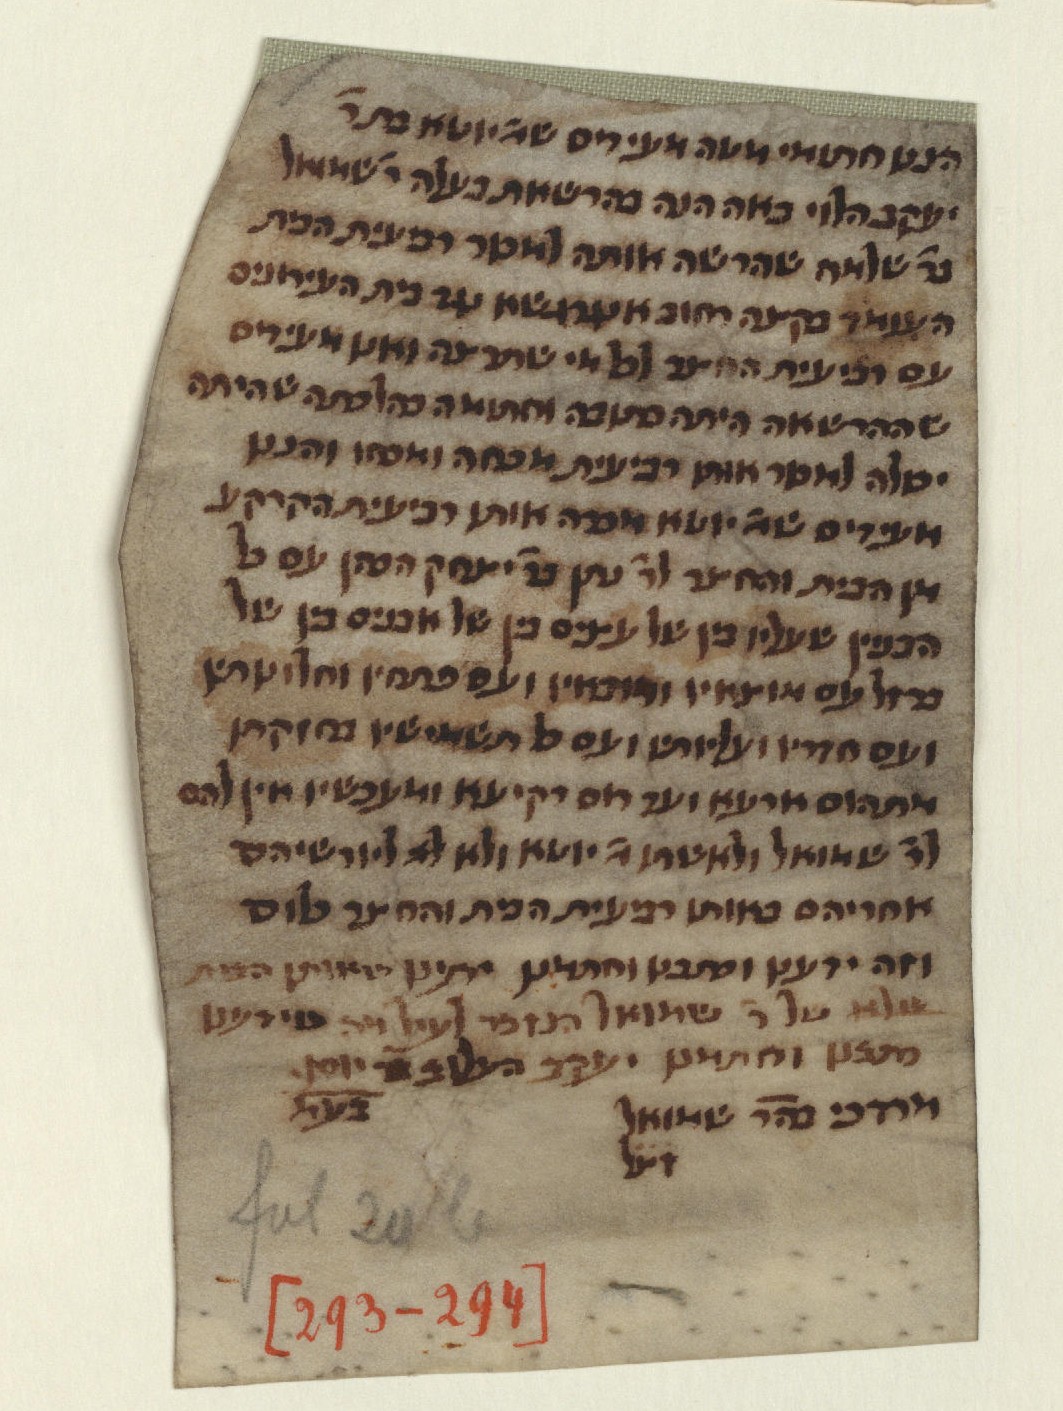 הננו חתומי מטה מעידים שמ׳ יוטא בת ר׳
יעקב הלוי באה הנה בהרשאת בעלה ר׳ שמואל
בר׳ שלמה שהרשה אותה למכר רביעית הבית
העומד בקצה רחוב אצל בית העירונים
עם רביעית החצר לכל מי שתרצה ואנו מעידים
שההרשאה היתה כתובה וחתומה כהלכתה שהיתה
יכולה למכר אותו רביעית מכחה ומכחו והננו
מעידים שמ׳ יוטא מכרה אותו רביעית הקרקע
מן הבית והחצר לר׳ נתן בר׳ יצחק הכהן עם כל
הבנין שעליו בין של עצים בין של אבנים בין של
ברזל עם מוצאיו ומובאיו ועם פתחיו וחלונותיו
ועם חדריו ועליותיו ועם כל תשמישיו בחזקתן
מתהום ארעא ועד רום רקיעא ומעכשיו אין להם
לר׳ שמואל ולאשתו מ׳ יוטא ולא ליורשיהם
אחריהם באותו רביעית הבית והחצר כלום
וזה ידענו וכתבנו וחתמנו יתירנו מאותו הבית
אלא של ר׳ שמואל הנזכר לעיל מה שידענו
כתבנו וחתמנו יעקב העלוב בר׳ יוסף
מרדכי בה״ר שמואל
זצ״ל
fol 20 b
[293–294]